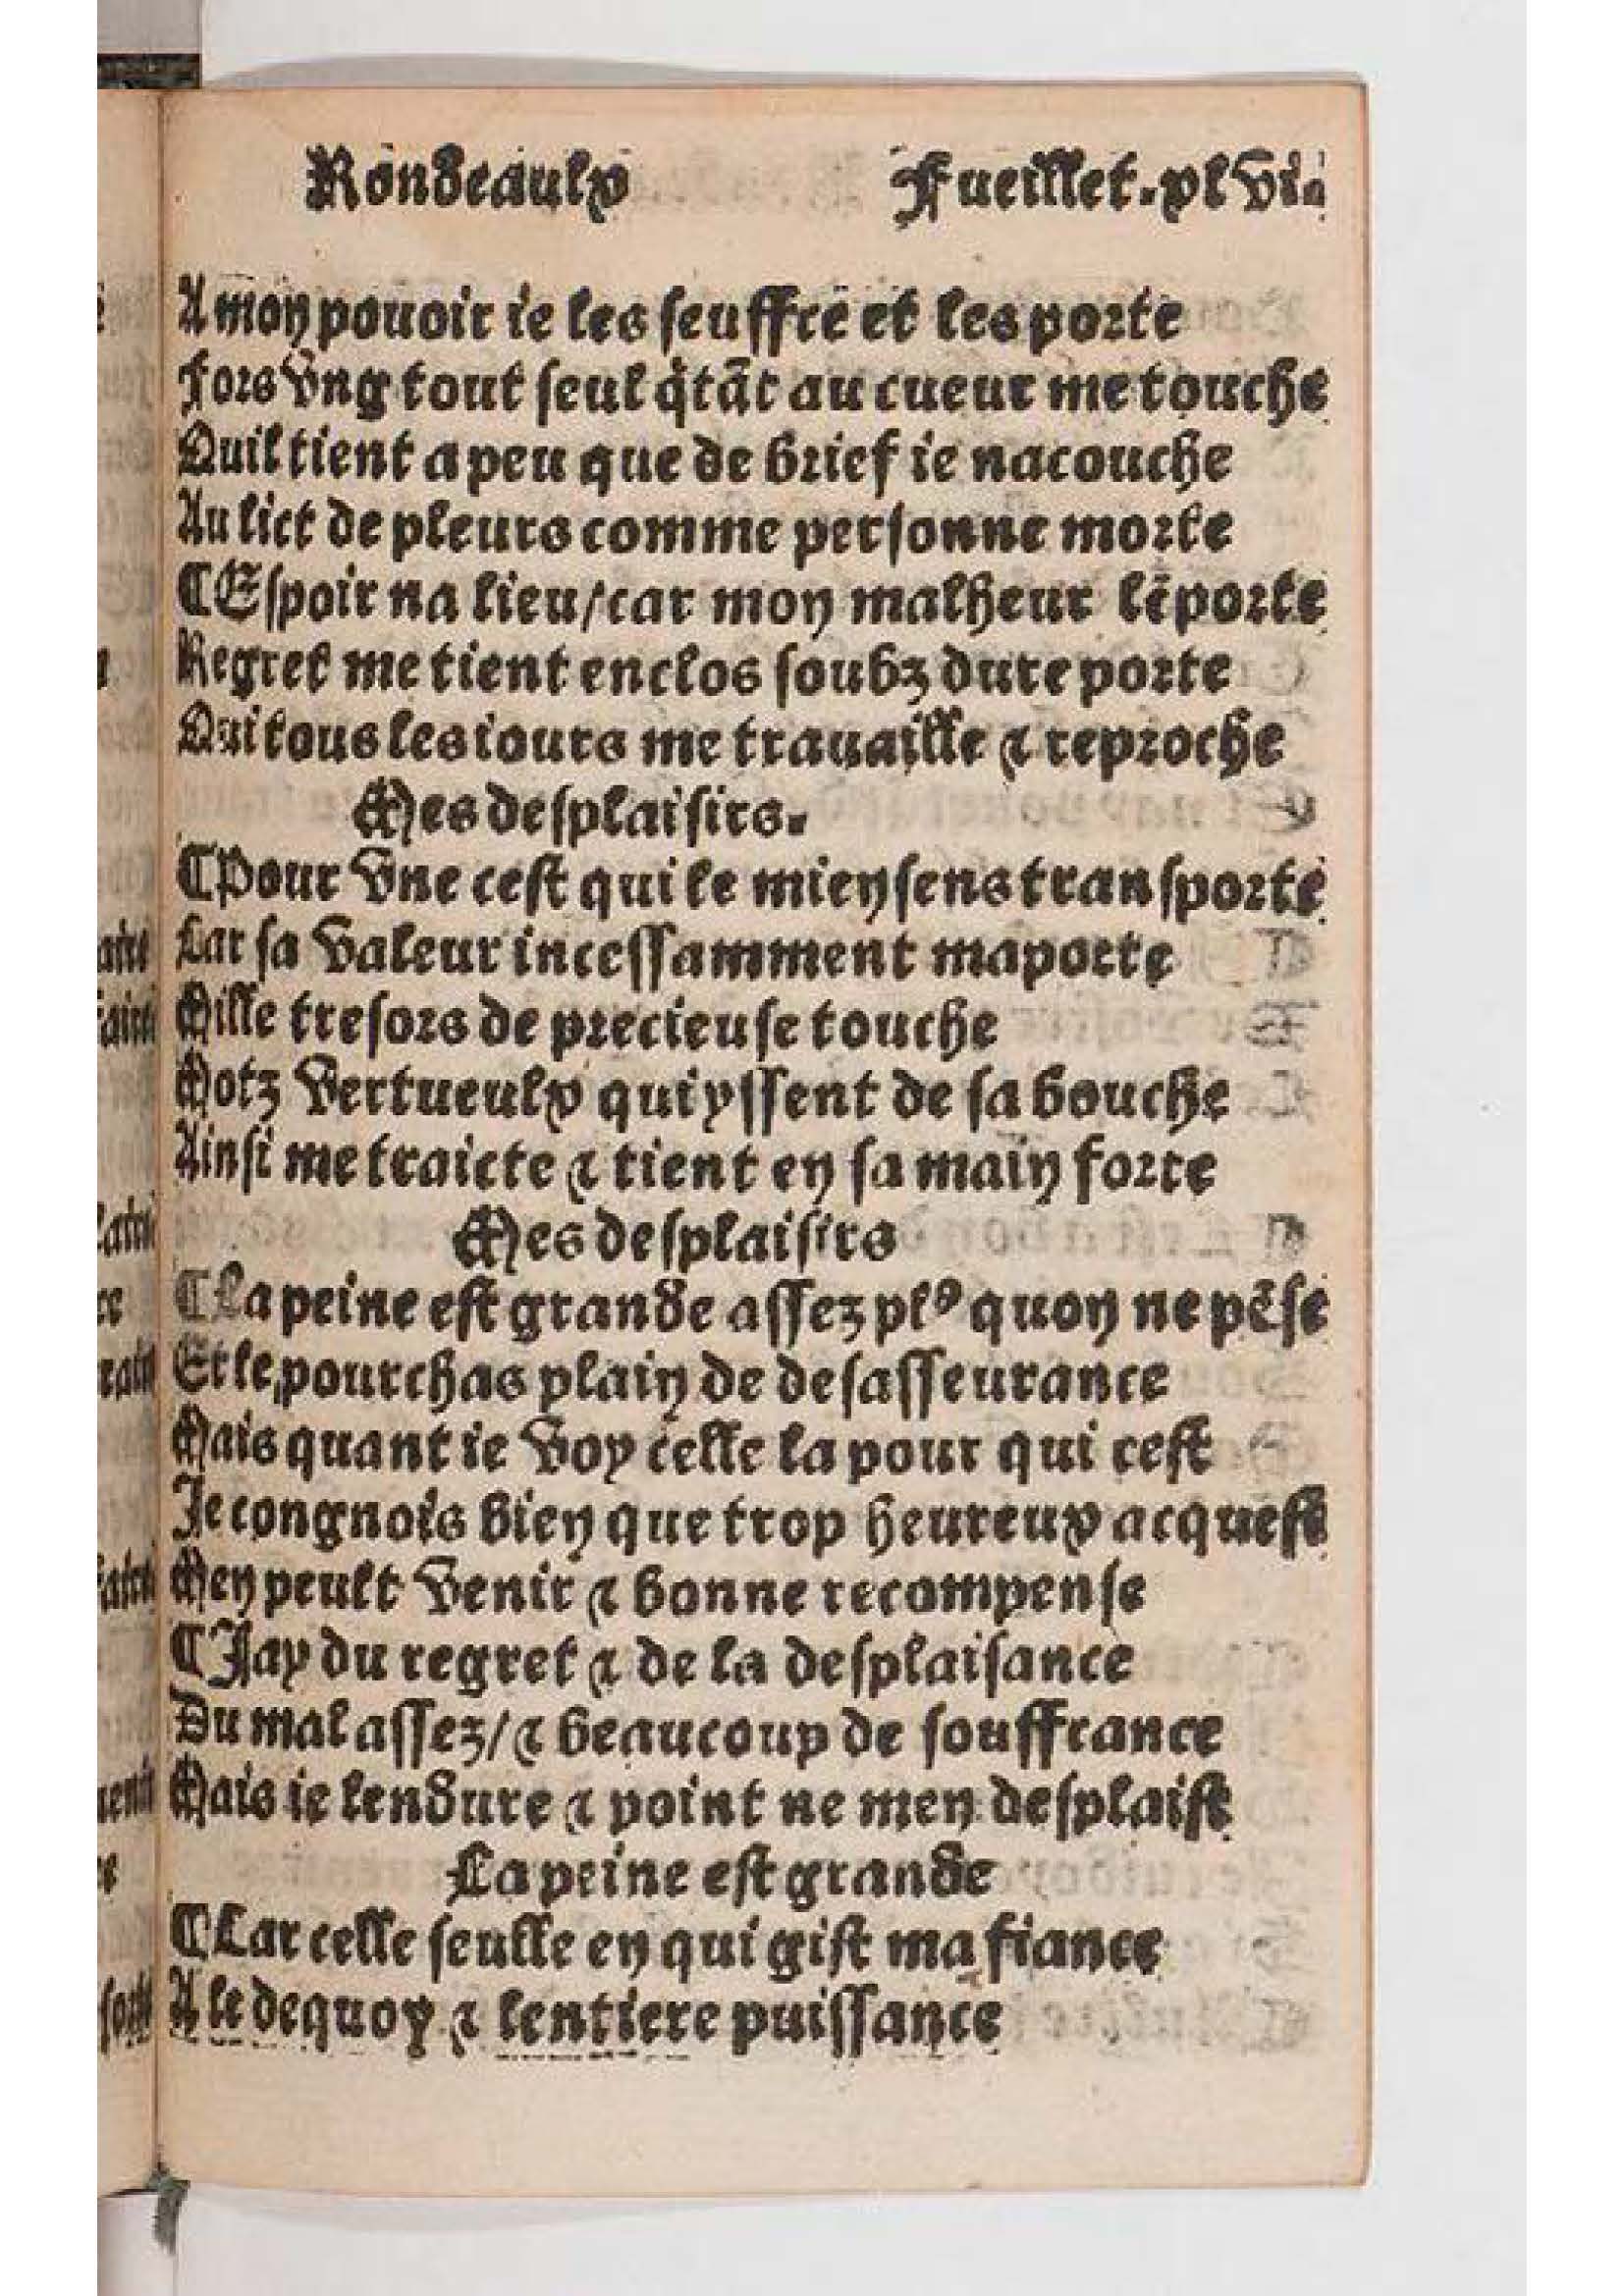 Rondeaulx Fueillet.xlvii
A mon pouoir ie les seuffre et les porte
Fors vng tout seul q̃ tãt au cueur me touche
Quil tient a peu que de brief ie nacouche
Au lict de pleurs comme personne morte
¶Espoir na lieu/car mon malheur lẽporte
Regret me tient enclos soubz dure porte
Qui tous les iours me trauaille & reproche
Mes desplaisirs.
¶Pour vne cest qui le mien sens transporte
Car sa valeur incessamment maporte
Mille tresors de precieuse touche
Motz vertueulx qui yssent de sa bouche
Ainsi me traicte & tient en sa main forte
Mes desplaisirs
¶La peine est grande assez plꝰ quon ne pẽse
Et le pourchas plain de desasseurance
Mais quant ie voy celle la pour qui cest
Je congnois bien que trop heureux acquest
Men peult venir & bonne recompense
¶Jay du regret & de la desplaisance
Du mal assez/& beaucoup de souffrance
Mais ie lendure & point ne men desplaist
La peine est grande
¶Car celle seulle en qui gist ma fiance
A le dequoy & lentiere puissance